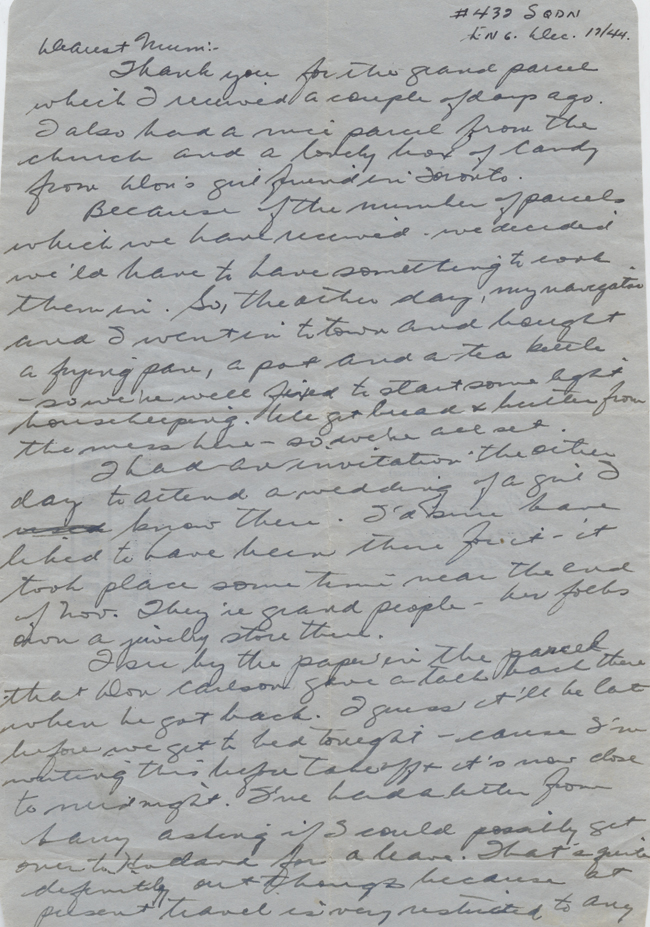 #432 SQDN
ENG. Dec. 17/44.
Dearest Mum:-
Thank you for the grand parcel
which I received a couple of days ago.
I also had a nice parcel from the
church and a lovely box of Candy
from Don's girl friend in Toronto.
Because of the number of parcels
which we have received - we decided
we'ld have to have something to cook
them in. So, the other day, my navigator
and I went in to town and bought
a frying pan, a pot and a tea kettle
- so we're well fixed to start some light
housekeeping. We get bread & butter from
the mess here - so we're all set.
I had an invitation the other
day to attend a wedding of a girl I
know there. I'd sure have
liked to have been there for it - it
took place some time near the end
of Nov. They're grand people - her folks
own a jewelly store there.
I see by the paper in the parcel
that Don Carlson gave a talk back there
when he got back. I guess it'll be late
before we get to bed tonight - cause I'm
writing this before takeoff & it's now close
to midnight. I've had a letter from
asking if I could possibly get
over to for a leave. That's quite
definitly out though because at
present travel is very restricted to any